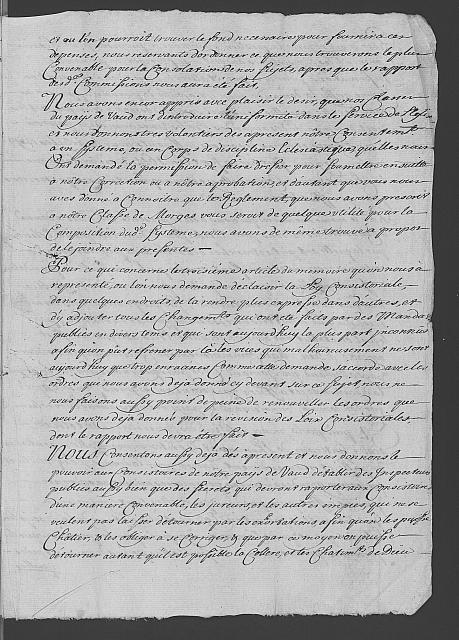 et ou l'on pourroit trouver le fond necessaire pour fournir a ces
depenses, nous reservants d'ordonner ce que nous trouverons le plus
Convenable pour la Consolation de nos sujets, apres que le rapport
de sd. Commissions nous aura eté fait,
Nous avons encor appris avec plaisir le desir, que nos Classes
du païs de Vaud ont d'introduire l'uniformité dans le service de l'Eglise
et nous donnons tres volontiers des apresent nôtre Consentemt
a un Systeme, ou un Corps de discipline Ecclesiastique, qu'elles nous
Ont demandé la permission de faire dresser pour soumettre en suitte
à nôtre Correction ou a nôtre approbation, et d'autant que vous nous
aves donné a Connoitre que le Reglement, que nous avons prescrit
a nôtre Classe de Morges vous seroit de quelque utilité pour la
Composition dud. Systeme, nous avons de même trouvé a propos
de le joindre aux presentes —
Pour ce qui concerne le troisieme article du memoire qu'on nous a
representé, ou l'on nous demande d'eclaircir la Loy Consistoriale,
dans quelques endroits de la rendre plus expresse dans d'autres, et
d'y adjouter tous les Changemts qui ont eté faits par des Mandats
publics en divers tems et qui sont aujourd'huy la plus part inconnus
afin qu'on puisse refrener par là les vices qui malheureusement ne sont
aujourd'huy que trop enracinés Comme cette demande s'accorde avec les
ordres que nous avons deja donné cy devant sur ce sujet nous ne
nous faisons aussy point de peine de renouveller les ordres que
nous avons deja donnés pour la revision des Loix Consistoriales,
dont le rapport nous devra étre fait —
Nous Consentons aussy deja des apresent et nous donnons le
pouvoir aux Consistoires de notre païs de Vaud d'etablir des Inspecteurs
publics aussy bien que des secrets qui devront raporter aux Consistoires
d'une maniere Convenable, les jureurs, et les autres impies, qui ne se
veulent pas laisser detourner par les exhortations afin qu'on les puisse
Chatier, & les obliger a se Corriger, & que par ce moyen on puisse
detourner autant qu'il est possible la Colere, et les Chatimts de Dieu